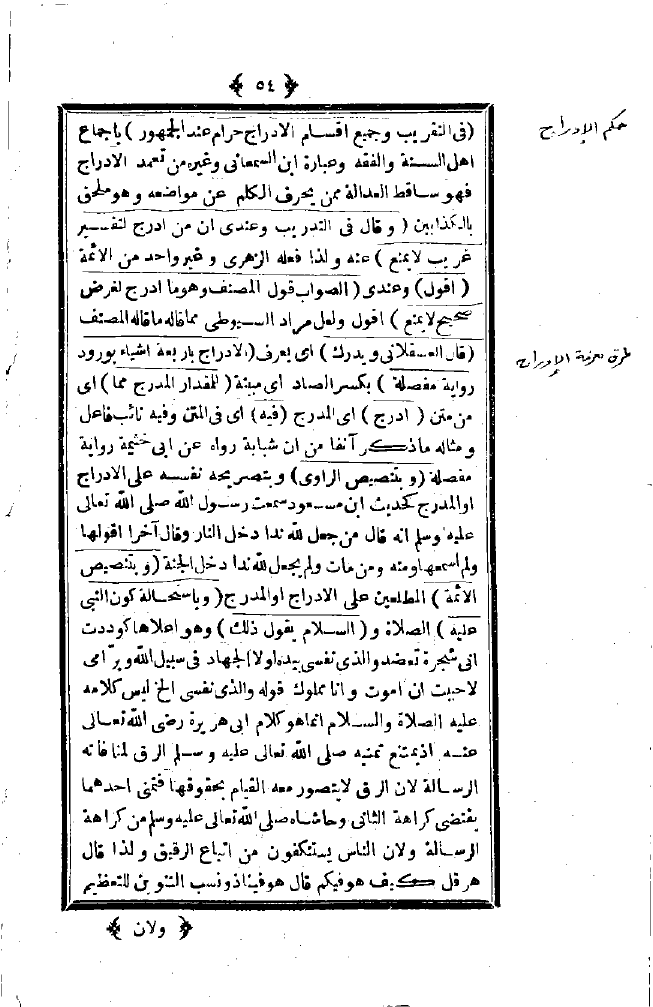 ﴿ ٥٤ ﴾
(فى التقريب وجميع اقسام الادراج حرام عند الجمهور) باجماع
حكم الإدراج
اهل السنة والفقه وعبارة ابن السمعانى وغيره من تعمد الادراج
فهو ساقط العدالة ممن يحرف الكلم عن مواضعه وهو ملحق
بالكذابين (وقال فى التدريب وعندى ان من ادرج لتفسير
غريب لايمنع) عنه ولذا فعله الزهرى وغير واحد من الائمة
(اقول) وعندى (الصواب قول المصنف وهو ما ادرج لغرض
صحيح لايمنع) اقول ولعل مراد السيوطى مما قاله ما قاله المصنف
(قال العسقلانى ويدرك) اى يعرف (الادراج باربعة اشياء بورود
طرق معرفة الإدراج
رواية مفصلة) بكسر الصاد اى مبينة (لمقدار المدرج مما) اى
من متن (ادرج) اى المدرج (فيه) اى فى المتن وفيه نائب فاعل
ومثاله ماذكر آنفا من ان شبابة رواه عن ابى خثيمة رواية
مفصلة (وبتنصيص الراوى) وبتصريحه نفسه على الادراج
اوالمدرج كحديث ابن مسعود سمعت رسول الله صلى الله تعالى
عليه وسلم انه قال من جعل لله ندا دخل النار وقال آخرا اقولها
ولم اسمعها ومنه ومن مات ولم يجعل لله ندا دخل الجنة (وبتنصيص
الائمة) المطلعين على الادراج اوالمدرج (وباستحالة كون النبى
عليه) الصلاة و (السلام يقول ذلك) وهو اعلاها كوددت
انى شجرة تعضد والذى نفسى بيده لولا الجهاد فى سبيل الله وبر امى
لاحببت ان اموت وانا مملوك قوله والذى نفسى الخ ليس كلامه
عليه الصلاة والسلام انما هو كلام ابى هريرة رضى الله تعالى
عنه اذ يمتنع تمنيه صلى الله تعالى عليه وسلم الرق لمنافاته
الرسالة لان الرق لايتصور معه القيام بحقوقها فتمنى احدهما
يقتضى كراهة الثانى وحاشاه صلى الله تعالى عليه وسلم من كراهة
الرسالة ولان الناس يستنكفون من اتباع الرقيق ولذا قال
هرقل كيف هو فيكم قال هو فينا ذونسب التنوين للتعظيم
﴿ ولان ﴾